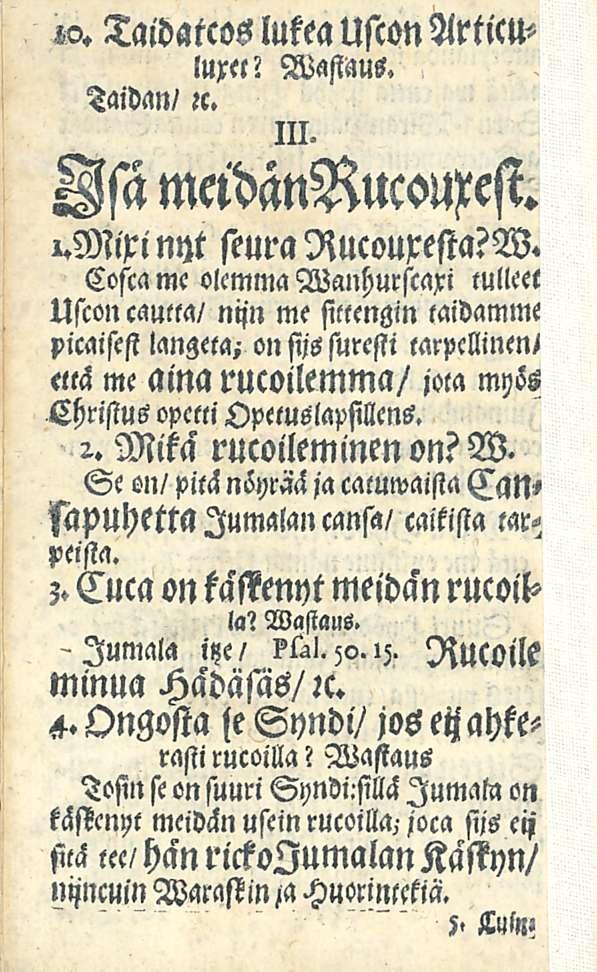 10. Taidatcos lukea Uscon Articu-
luxet? Wastaus.
Taidan/ ꝛc.
III.
Isä meidän Rucouxest.
1. Mixi nyt seura Rucouxesta? W.
Cosca me olemma Wanhurscaxi tulleet
Uscon cautta/ nijn me sittengin taidamme
picaisest langeta; on sijs suresti tarpellinen/
että me aina rucoilemma/ jota myös
Christus opetti Opetuslapsillens.
2. Mikä rucoileminen on? W.
Se on/ pitä nöyrää ja catuwaista Can-
sapuhetta Jumalan cansa/ caikista tar-
peista.
3. Cuca on käskenyt meidän rucoil-
la? Wastaus.
Jumala itze/ Psal. 50. 15. Rucoile
minua Hädäsäs/ ꝛc.
4. Ongosta se Syndi/ jos eij ahke-
rasti rucoilla? Wastaus
Tosin se on suuri Syndi: sillä Jumala on
käskenyt meidän usein rucoilla; joca sijs eij
sitä tee/ hän ricko Jumalan Käskyn/
nijncuin Waraskin ja Huorintekiä.
5. Cuin-